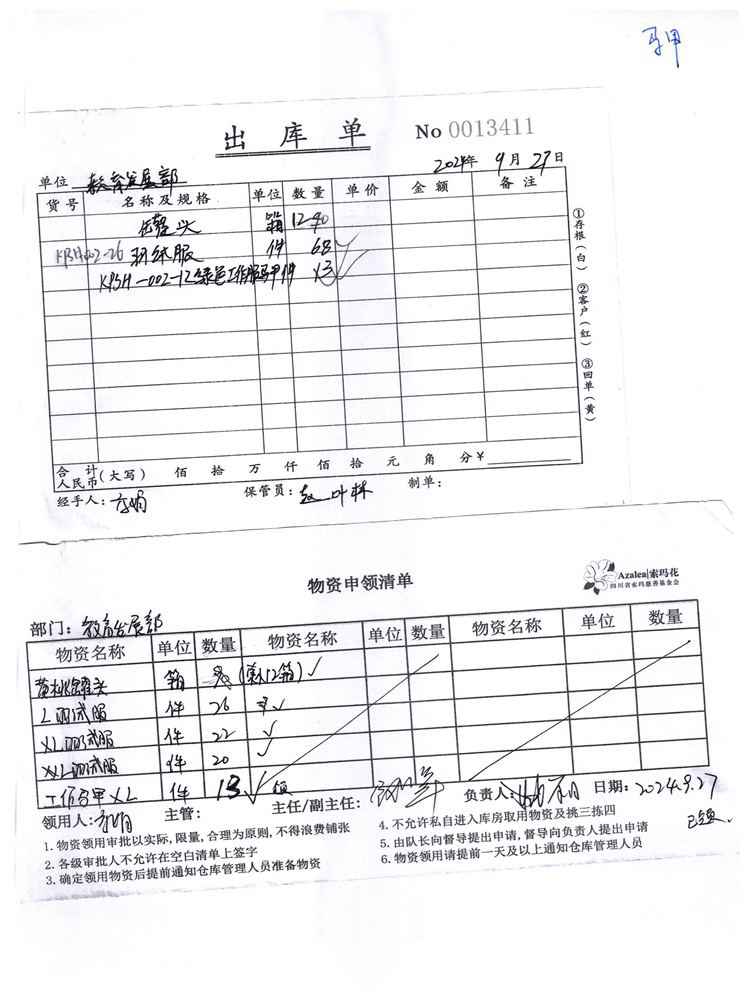 马甲
出库单 No 0013411
单位 教育发展部 2024年 9月 27日
货号 名称及规格 单位 数量 单价 金额 备注
罐头 箱 12
KBH002-26 羽绒服 件 68
KBH-002-12 绿色工作服马甲 件 13
①存根(白) ②客户(红) ③回单(黄)
合计人民币(大写) 佰 拾 万 仟 佰 拾 元 角 分 ¥
经手人: 保管员: 叶林 制单:
Azalea|索玛花
四川省索玛慈善基金会
物资申领清单
部门: 教育发展部
物资名称 单位 数量 物资名称 单位 数量 物资名称 单位 数量
黄桃罐头 箱 (12箱) ✓
L 件 26 ✓
XL 件 22 ✓
XXL 件 20 ✓
工作马甲XL 件 13 ✓
领用人: 主管: 主任/副主任: 负责人: 日期: 2024.9.27
1. 物资领用审批以实际, 限量, 合理为原则, 不得浪费铺张
2. 各级审批人不允许在空白清单上签字
3. 确定领用物资后提前通知仓库管理人员准备物资
4. 不允许私自进入库房取用物资及挑三拣四
5. 由队长向督导提出申请, 督导向负责人提出申请
6. 物资领用请提前一天及以上通知仓库管理人员